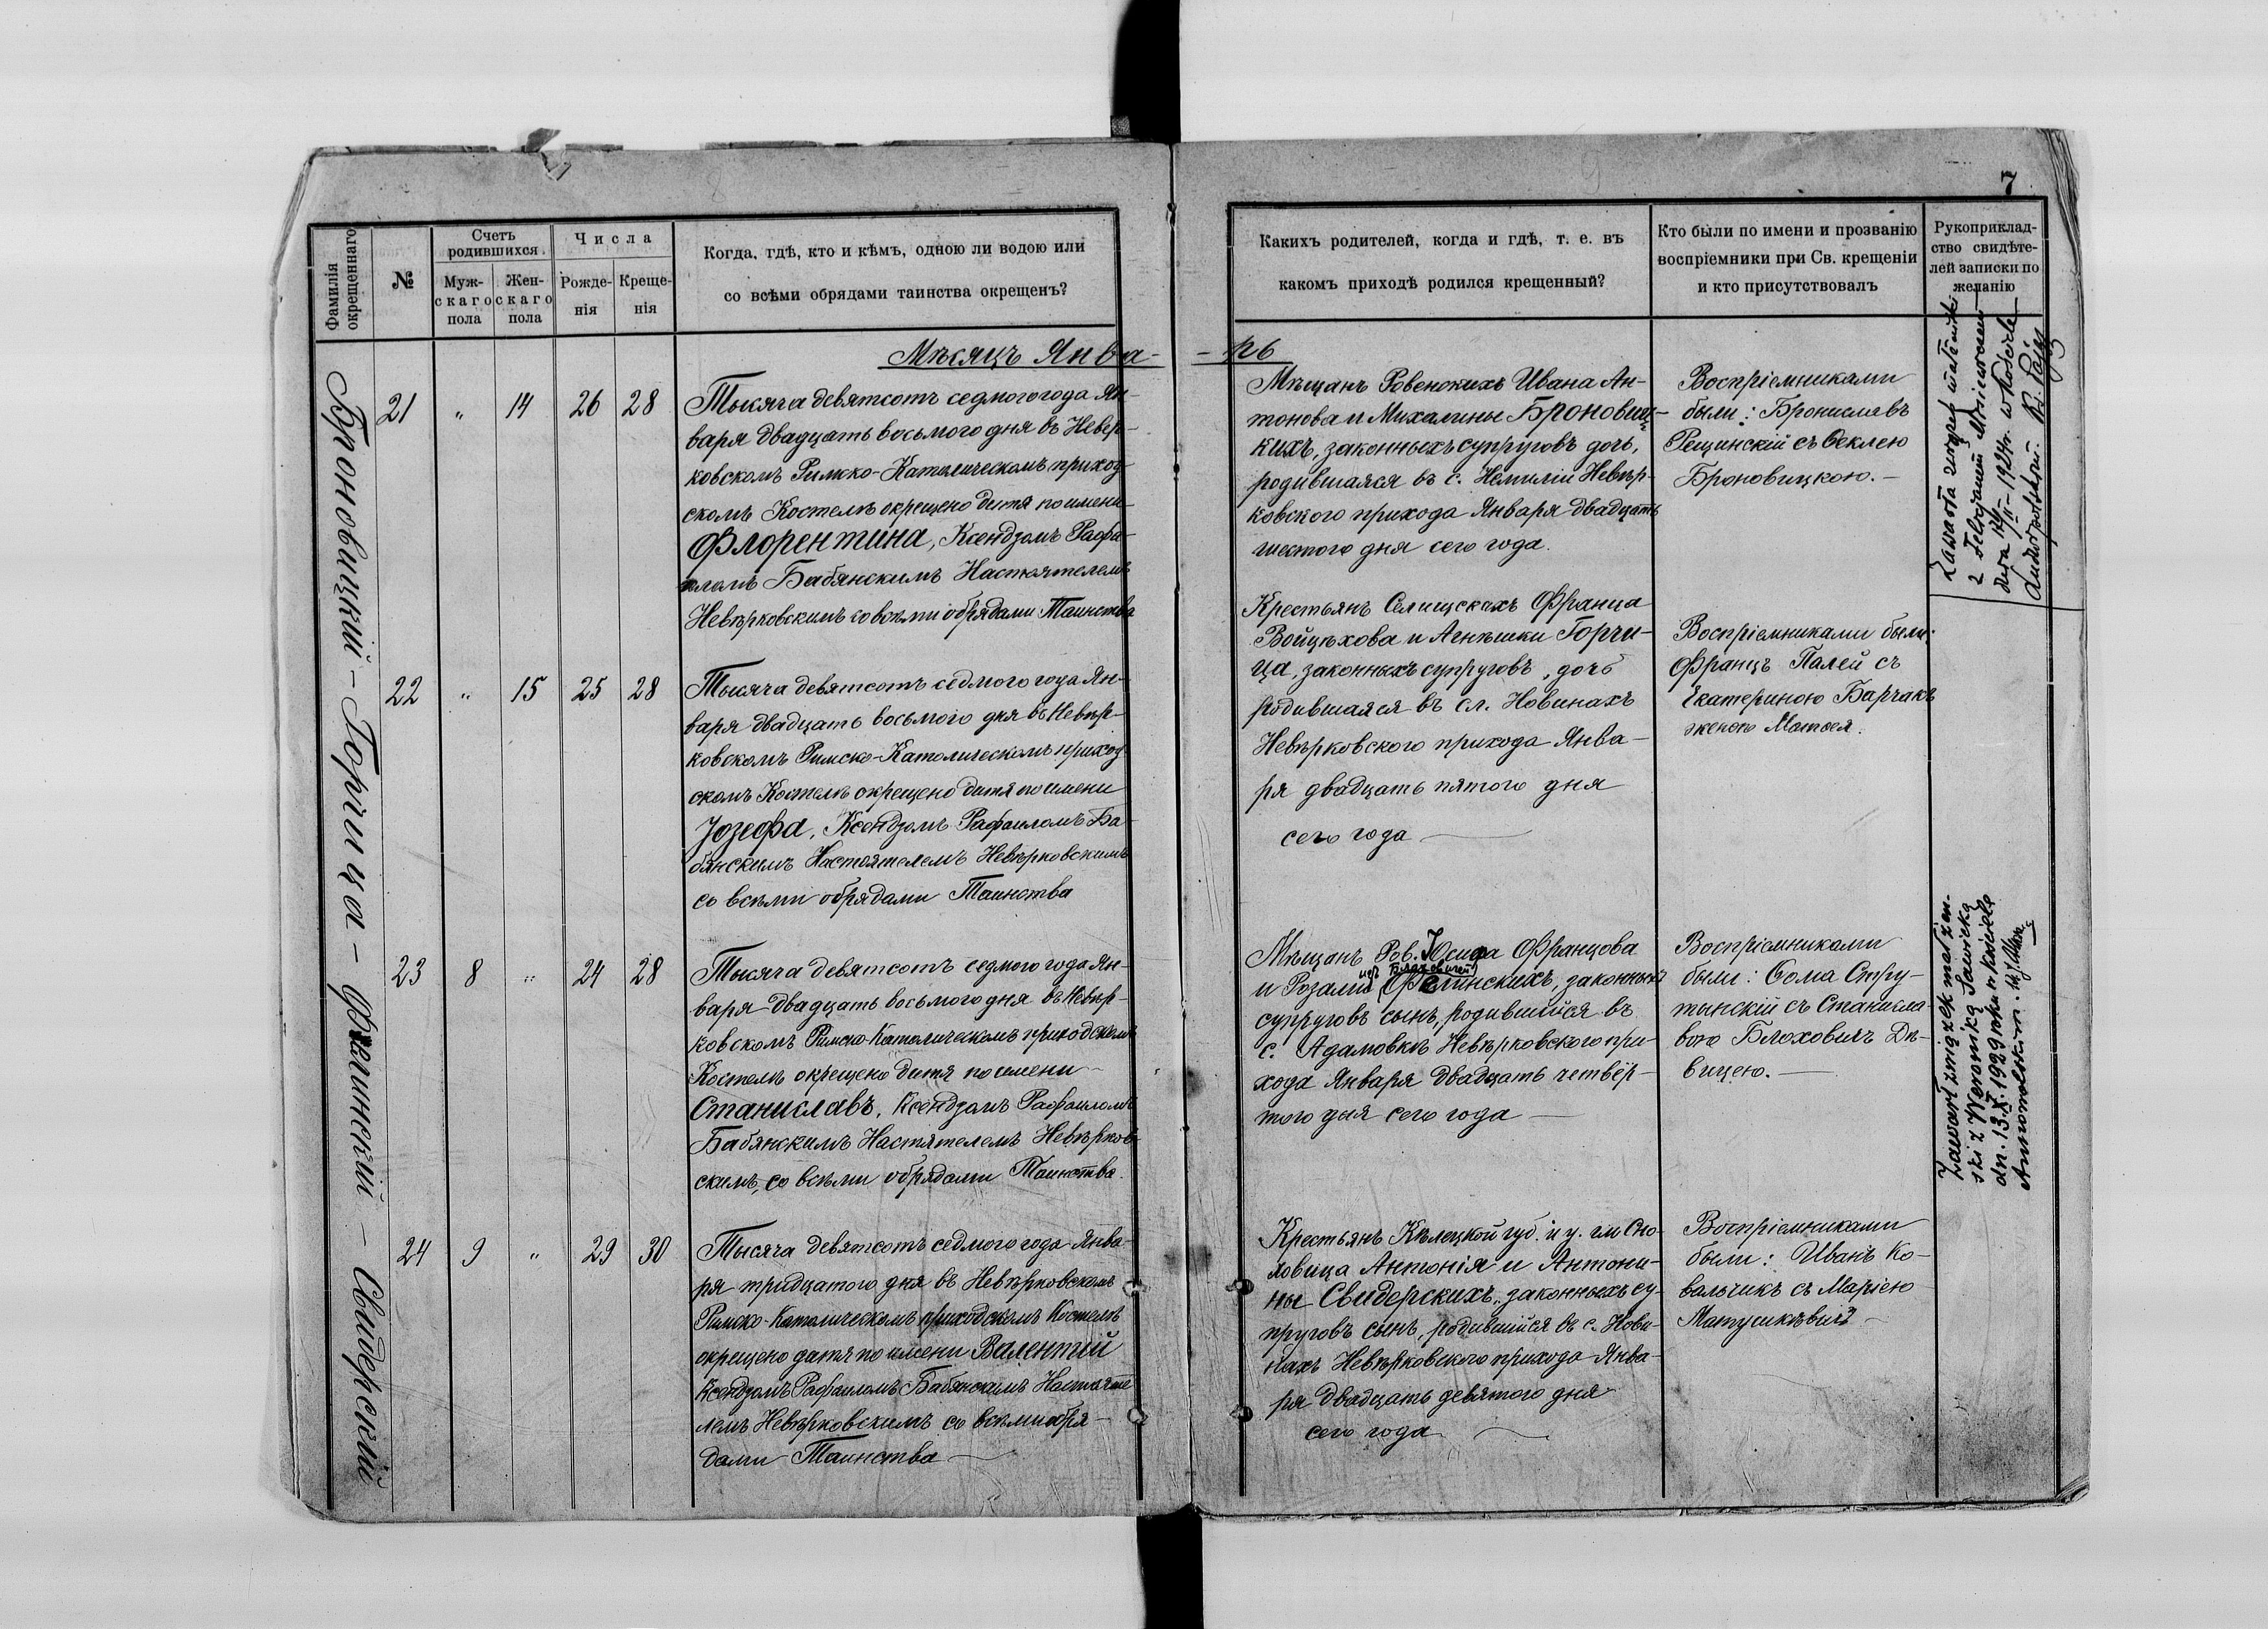 7
Фамилія
окрещеннаго
№
Счетъ
родившихся.
Муж-
скаго
пола
Жен-
скаго
пола
Числа
Рожде-
нія
Креще-
нія
Когда, гдѣ, кто и кѣмъ, одною ли водою или
со всѣми обрядами таинства окрещенъ?
Какихъ родителей, когда и гдѣ, т. е. въ
какомъ приходѣ родился крещенный?
Кто были по имени и прозванію
воспріемники при Св. крещеніи
и кто присутствовалъ
Рукоприклад-
ство свидѣте-
лей записки по
желанію
Мѣсяцъ Янва-
-рь
Броновицкій - Горчица - Фелинскій - Свидерскій
21 " 14 26 28
Тысяча девятсотъ седмого года Ян-
варя двадцать восьмого дня въ Невер-
ковскомъ Римско-Католическомъ приход-
скомъ Костелѣ окрещено дитя по имени
Флорентина, Ксендзомъ Рафа-
иломъ Бабянскимъ Настоятелемъ
Невѣрковскимъ со всѣми обрядами Таинства
Мѣщанъ Ровенскихъ Ивана Ан-
тонова и Михалины Броновиц-
кихъ, законныхъ супруговъ дочь,
родившаяся въ с. Немиліи Невѣр-
ковского прихода Января двадцать
шестого дня сего года.
Воспріемниками
были: Брониславъ
Рещинскій съ Ѳеклею
Броновицкою.-
2 Felicjanem
dnia 1924 r. w Kościele
Ludwipolskim.
22 " 15 25 28
Тысяча девятсотъ седмого года Ян-
варя двадцать восьмого дня въ Невѣр-
ковскомъ Римско-Католическомъ приход-
скомъ Костелѣ окрещено дитя по имени
Юзефа, Ксендзомъ Рафаиломъ Ба-
бянскимъ Настоятелемъ Невѣрковскимъ
со всѣми обрядами Таинства
Крестьянъ Селищскахъ Франца
Войцѣхова и Агнѣшки Горчи-
ца, законныхъ супруговъ, дочь
родившаяся въ сл. Новинахъ
Невѣрковского прихода Янва-
ря двадцать пятого дня
сего года
Воспріемниками были:
Францъ Палей съ
Екатериною Барчакъ
женою Матѳея.
23 8 " 24 28
Тысяча девятсотъ седмого года Ян-
варя двадцать восьмого дня въ Невѣр-
ковскомъ Римско-Католическомъ приходскомъ
Костелѣ окрещено дитя по имени
Станиславъ, Ксендзомъ Рафаиломъ
Бабянскимъ Настятелемъ Невѣрков-
скимъ, со всѣми обрядами Таинства.
Мѣщанъ Ров. Юсифа Францова
и Розаліи Фелинскихъ, законныхъ
супруговъ сынъ, родившійся въ
с. Адамовкѣ Невѣрковского при-
хода Января двадцать четвёр-
того дня сего года
Воспріемниками
были: Ѳома Стру-
тынскій съ Станисла-
вою Блоховичъ Дѣ-
вицею.
Zawarł związek małżeń-
ski z Weroniką Sawicką
dn. 13.X.1929 roku w kościele
24 9 " 29 30
Тысяча девятсотъ седмого года Янва-
ря тридцатого дня въ Невѣрковскомъ
Римско-Католическомъ приходскомъ Костелѣ
окрещено дитя по имени Валентій
Ксендзомъ Рафаиломъ Бабянскимъ Настояте
лемъ Невѣрковскимъ со всѣми обря-
дами Таинства
Крестьянъ Кѣлецкой губ. и у. гм Сно-
ховица Антонія и Антони-
ны Свидерскихъ, законныхъ су-
пруговъ сынъ, родившійся въ с. Нови-
нахъ Невѣрковского прихода Янва-
ря двадцать девятого дня
сего года
Воспріемниками
были: Иванъ Ко-
вальчикъ съ Маріею
Матусикѣвичъ